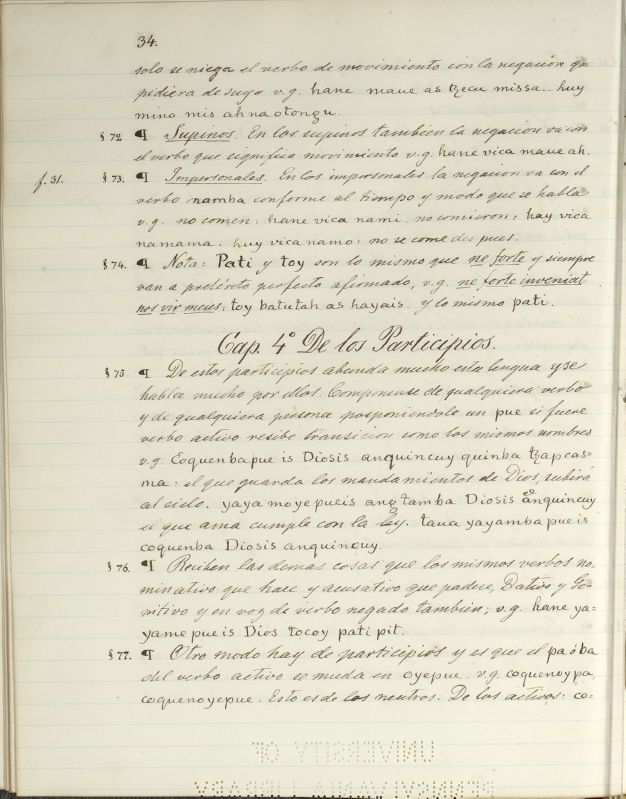 34.
solo se niega el verbo de movimiento con la negación que
pidiera de suyo v.g. hane maue as tzecu missa. huy
mina mis ahnaotongu.
§ 72 ¶ Supinos. En los supinos tambien la negacion va con
el verbo que significa movimiento v.g. hane vica maue ah.
f. 31. § 73. ¶ Impersonales. En los impersonales la negacion va con el
verbo namba conforme al tiempo y modo que se habla
v.g. no comen: hane vica nami. no comieron: hay vica
namama. huy vica namo: no se come despues.
§ 74. ¶ Nota: Pati y toy son lo mismo que ne forte y siempre
van a pretérito perfecto afirmado, v.g. ne forte inveniat
nos vir meus: toy batutah as hayais. y lo mismo pati.
Cap. 4º De los Participios.
§ 75 ¶ De estos participios abunda mucho esta lengua y se
habla mucho por ellos. Componense de qualquiera verbo
y de qualquiera persona posponiendole un pue si fuere
verbo activo recibe transicion como los mismos nombres
v.g. Coquenbapue is Diosis anquincuy quinba tzapcas=
ma: el que guarda los mandamientos de Dios, subirá
al cielo. yaya moye pueis ang tamba Diosis anquincuy
el que ama cumple con la ley. taua yayamba pue is
coquenba Diosis anquincuy.
§ 76. ¶ Reciben las demas cosas que los mismos verbos no
minativo que hace y acusativo que padece, Dativo y Ge=
nitivo y en voz de verbo negado tambien; v.g. hane ya=
yame pue is Dios tocoy pati pit.
§ 77. ¶ Otro modo hay de participios y es que el pa ó ba
del verbo activo se muda en oyepue. v.g. coquenoypa,
coquenoyepue. Esto es de los neutros. De los activos: co=
UNIVERSITY OF
PENNSYLVANIA LIBRARY